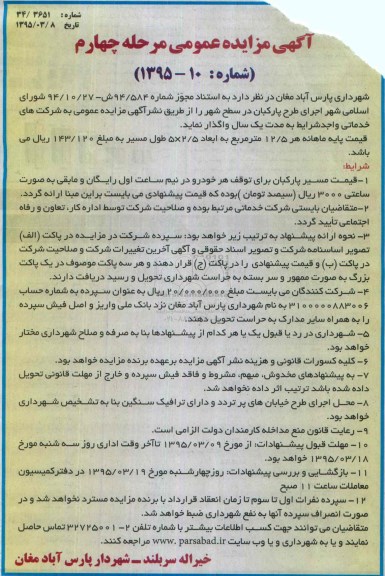 شماره: ۳۶۵۱ /۳۴
تاریخ ۱۳۹۵/۰۳/۸
آگهی مزایده عمومی مرحله چهارم
(شماره: ۱۰ – ۱۳۹۵)
شهرداری پارس آباد مغان در نظر دارد به استناد مجوز شماره ۹۴/۵۸۴ش-۹۴/۱۰/۲۷ شورای
اسلامی شهر اجرای طرح پارکبان در سطح شهر را از طریق نشر آگهی مزایده عمومی به شرکت های
خدماتی واجدشرایط به مدت یک سال واگذار نماید.
قیمت پایه ماهانه هر ۱۲/۵ مترمربع به ابعاد ۲/۵×۵ طول مسیر به مبلغ ۱۴۳/۱۲۰ ریال می
باشد.
شرایط:
۱-قیمت مسیر پارکبان برای توقف هر خودرو در نیم ساعت اول رایگان و مابقی به صورت
ساعتی ۳۰۰۰ ریال (سیصد تومان )بوده که قیمت پیشنهادی می بایست براین مبنا ارائه گردد.
۲-متقاضیان بایستی شرکت خدماتی مرتبط بوده و صلاحیت شرکت توسط اداره کار، تعاون و رفاه
اجتماعی تأیید گردد.
۳- نحوه ارائه پیشنهاد به ترتیب زیر خواهد بود: سپرده شرکت در مزایده در پاکت (الف)
تصویر اساسنامه شرکت و تصویر اسناد حقوقی و آگهی آخرین تغییرات شرکت و صلاحیت شرکت
در پاکت (ب) و قیمت پیشنهادی را در پاکت (ج) قرار دهند و هر سه پاکت موصوف در یک پاکت
بزرگ به صورت ممهور و سر بسته به حراست شهرداری تحویل و رسید دریافت دارند.
۴- شرکت کنندگان می بایست مبلغ ۲۰/۰۰۰/۰۰۰ ریال به عنوان سپرده به شماره حساب
۳۱۰۰۰۰۰۸۸۳۰۰۶ به نام شهرداری پارس آباد مغان نزد بانک ملی واریز و اصل فیش سپرده
را به همراه سایر مدارک به حراست تحویل دهند.
۵- شهرداری در رد یا قبول یک یا هر کدام از پیشنهادها بنا به صرفه و صلاح شهرداری مختار
خواهد بود.
۶- کلیه کسورات قانونی و هزینه نشر آگهی مزایده برعهده برنده مزایده خواهد بود.
۷- به پیشنهادهای مخدوش، مبهم، مشروط و فاقد فیش سپرده و خارج از مهلت قانونی تحویل
داده شده باشد ترتیب اثر داده نخواهد شد.
۸- محل اجرای طرح خیابان های پر تردد و دارای ترافیک سنگین بنا به تشخیص شهرداری
خواهد بود.
۹- رعایت قانون منع مداخله کارمندان دولت الزامی است.
۱۰- مهلت قبول پیشنهادات: از مورخ ۱۳۹۵/۰۳/۰۹ تاآخر وقت اداری روز سه شنبه مورخ
۱۳۹۵/۰۳/۱۸ خواهد بود.
۱۱- بازگشایی و بررسی پیشنهادات: روزچهارشنبه مورخ ۱۳۹۵/۰۳/۱۹ در دفترکمیسیون
معاملات ساعت ۱۱ صبح
۱۲- سپرده نفرات اول تا سوم تا زمان انعقاد قرارداد با برنده مزایده مسترد نخواهد شد و در
صورت انصراف سپرده آنها به نفع شهرداری ضبط خواهد شد.
متقاضیان می توانند جهت کسب اطلاعات بیشتر با شماره تلفن ۲-۳۲۷۲۵۰۰۱ تماس حاصل
نمایند و یا به شهرداری و یا وب سایت www. parsabad.ir مراجعه کنند.
خیراله سربلند – شهردار پارس آباد مغان